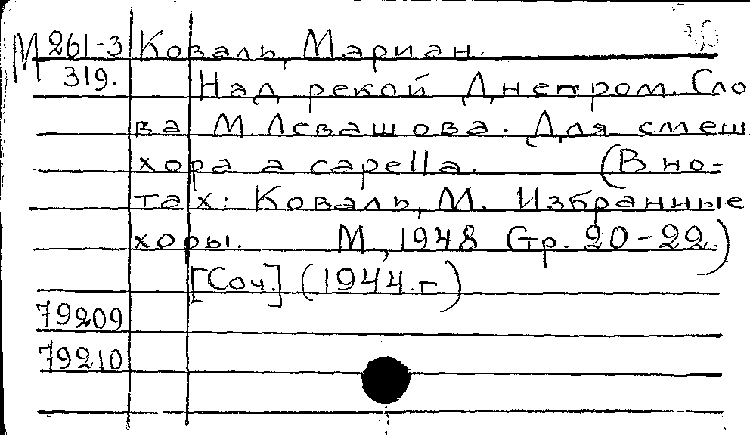 М 261-3 Коваль, Мариан.
319. Над рекой Днепром. Сло
ва М. Левашова. Для смеш
хора a capella. (В но-
тах: Коваль, М. Избранные
хоры. М., 1948 Стр. 20-22.)
[Соч.] (1944.г)
79209
79210